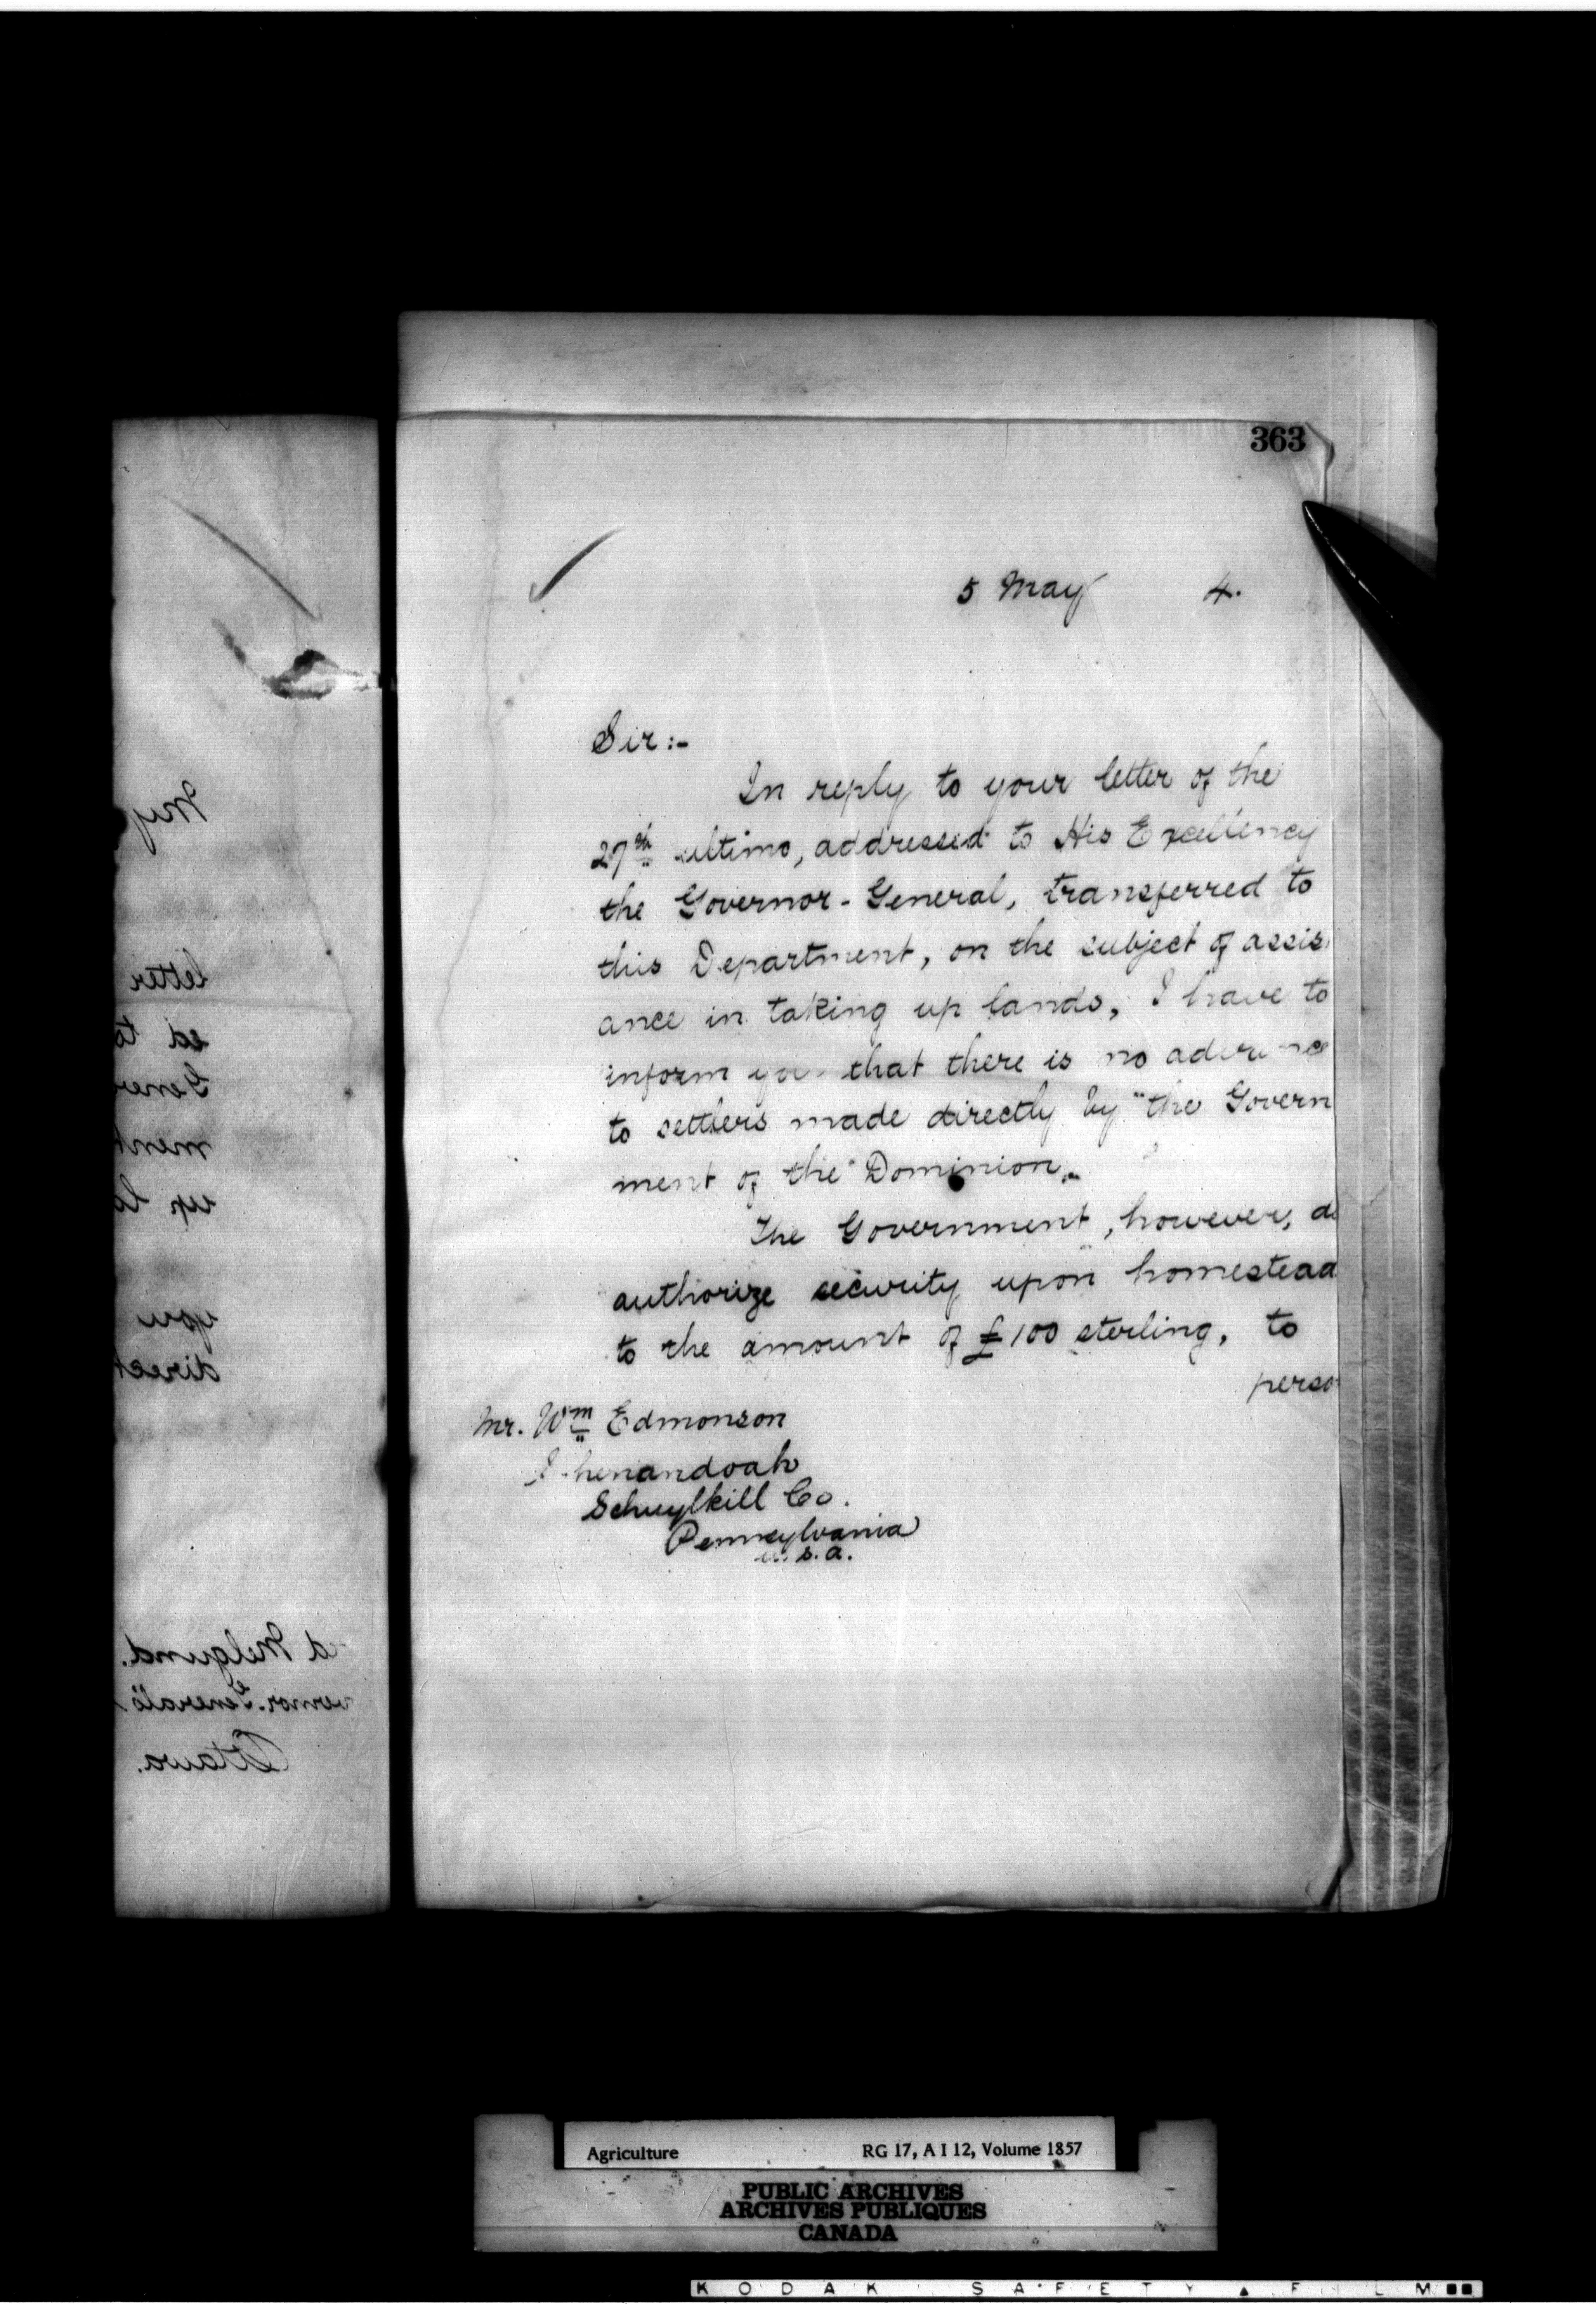 363
5 May 4.
Sir:-
In reply to your letter of the
27th ultimo, addressed to His Excellency
the Governor-General, transferred to
this Department, on the subject of assis
ance in taking up lands, I have to
inform you that there is no advance
to settlers made directly by the Govern
ment of the Dominion.
The Government, however, do
authorize security upon homestead
to the amount of £100 sterling, to
perso
Mr. Wm Edmonson
Shenandoah
Schuylkill Co.
Pennsylvania
U.S.A.
My
letter
ed to
Gener
ment
up la
you
direct
d Melgund.
vernor-General's
Ottawa.
Agriculture RG 17, A I 12, Volume 1857
PUBLIC ARCHIVES
ARCHIVES PUBLIQUES
CANADA
KODAK SAFETY ▲ FILM ■■